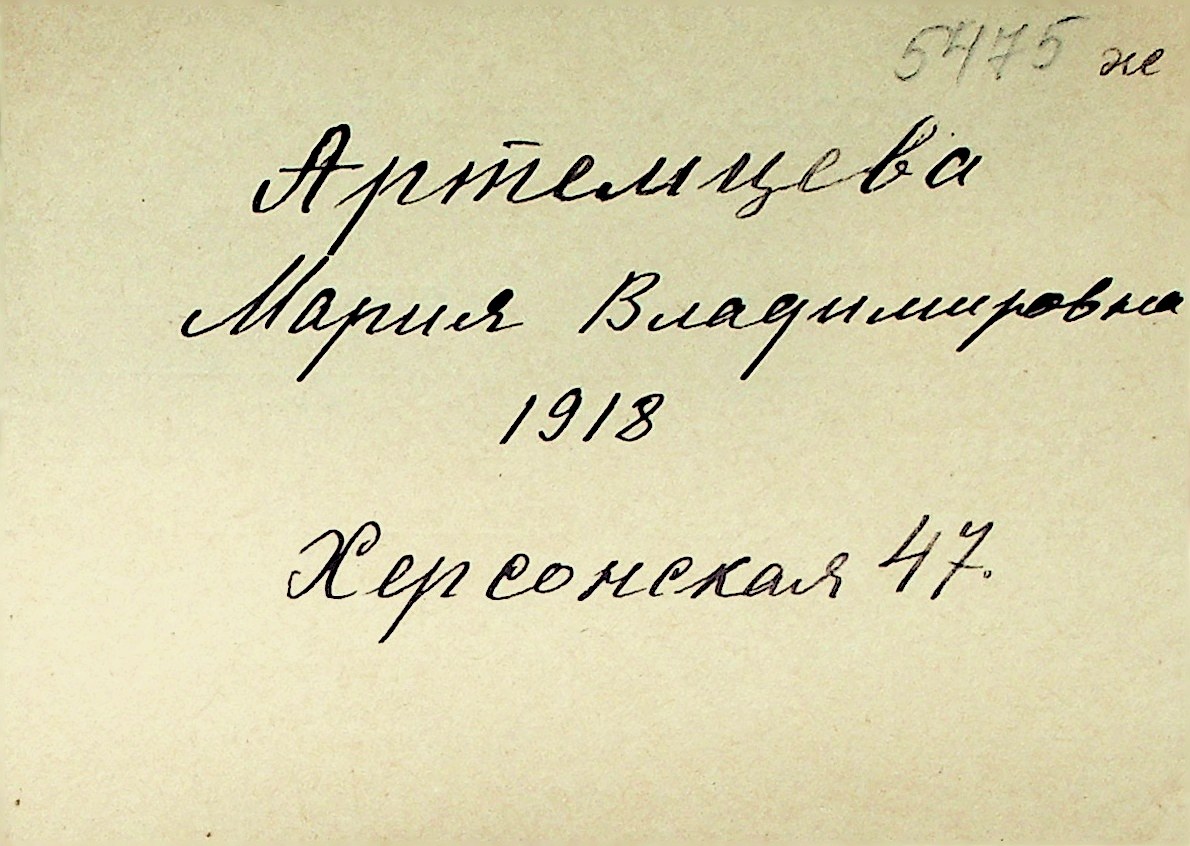 5475 же
Артемцева
Мария Владимировна
1918
Херсонская 47.